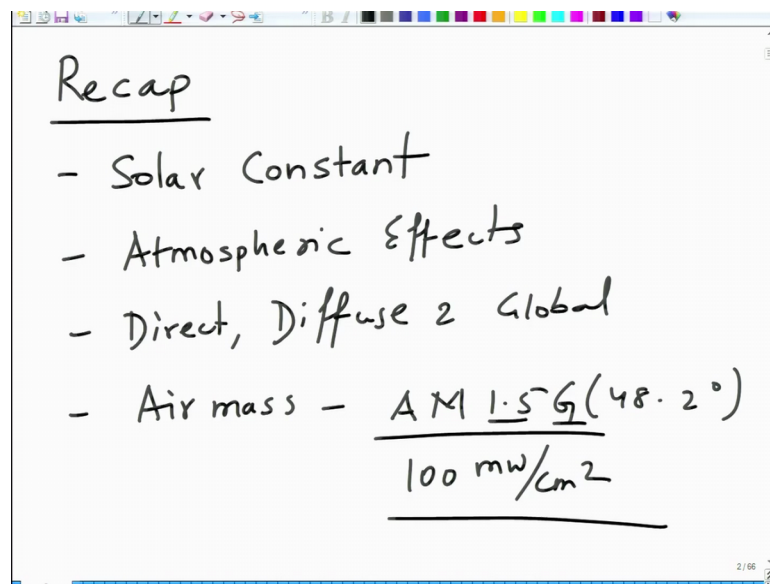 Recap
- Solar Constant
- Atmospheric Effects
- Direct, Diffuse & Global
- Air mass - AM 1.5 G (48.2°)
100 mW/cm2
2/66